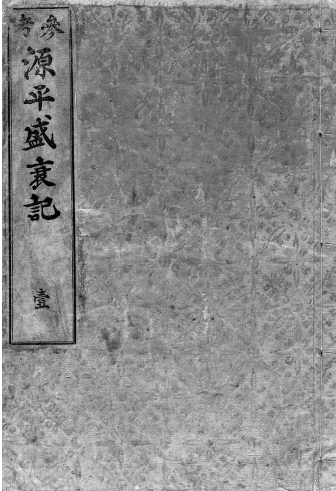 參考
源平盛衰記
壹